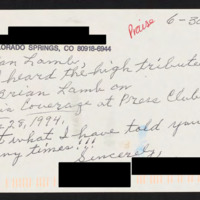 Praise 6-30
COLORADO SPRINGS, CO 80918-6944
an Lamb,
heard the high tribute
Brian Lamb on
is Coverage at Press Club
28, 1994.
t what I have told you
ny times!!!
Sincerely,